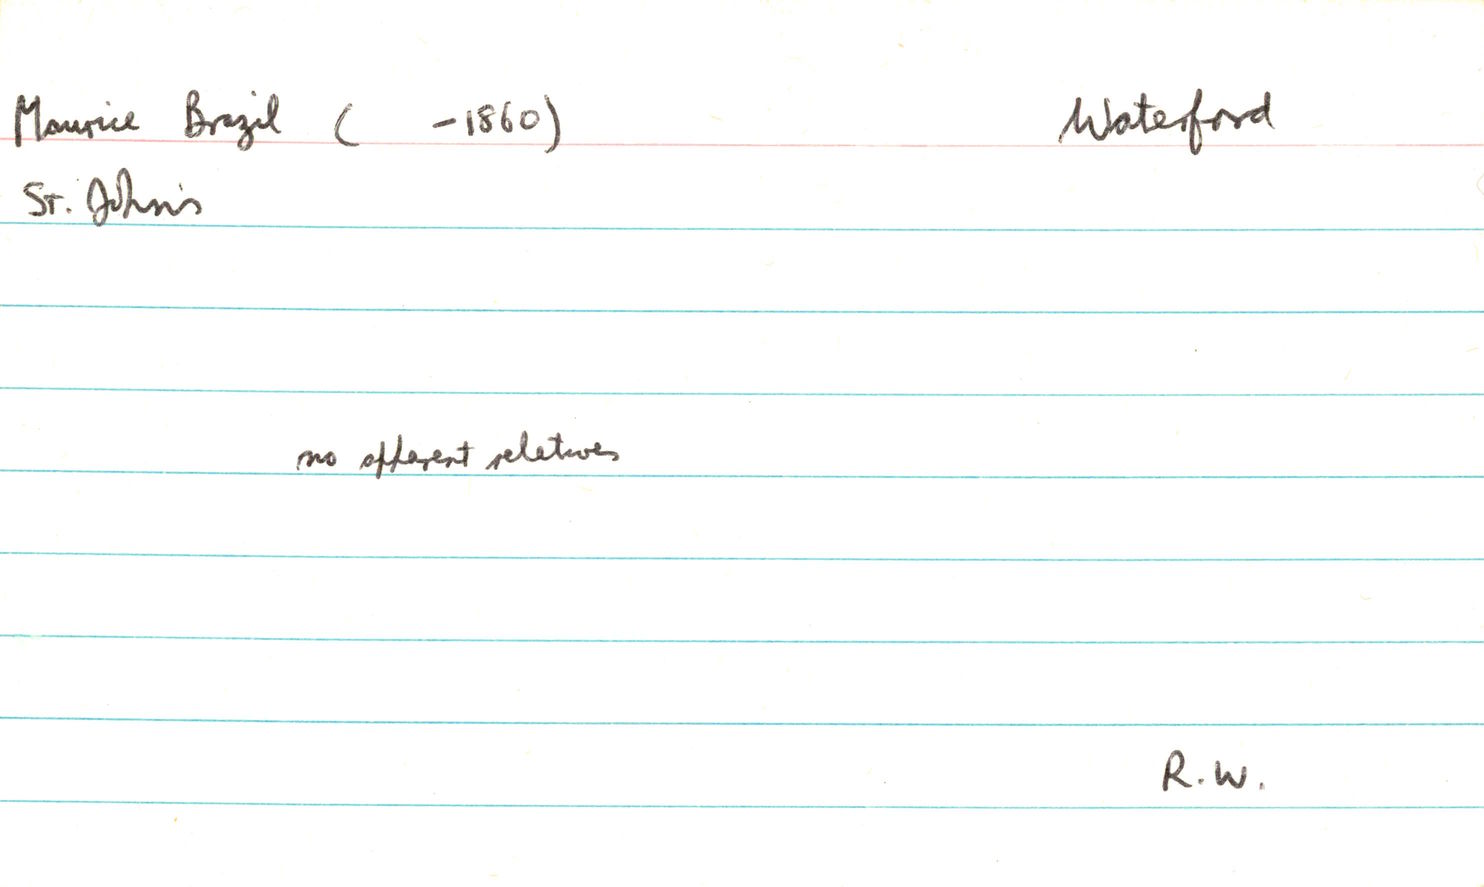 Maurice Brazil (      -1860)      Waterford
St. John's
no apparent relatives
R.W.